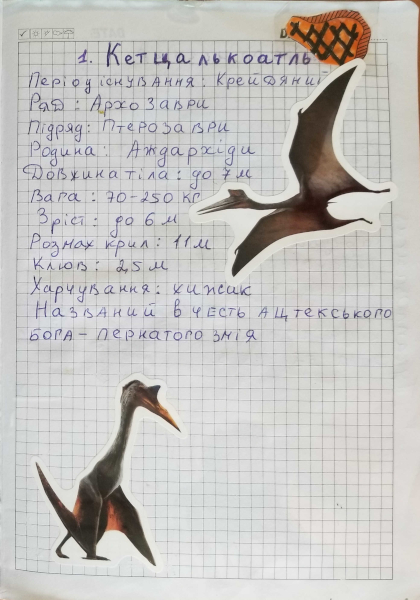 1. Кетщалькоатль
Період існування: Крейдяний
Ряд: Архозаври
Підряд: Птерозаври
Родина: Аждархіди
Довжина тіла: до 7 м
Вага: 70-250 кг
Зріст: до 6 м
Розмах крил: 11 м
Клюв: 2,5 м
Харчування: хижак
Названий в честь ацтекського
бога - пернатого змія